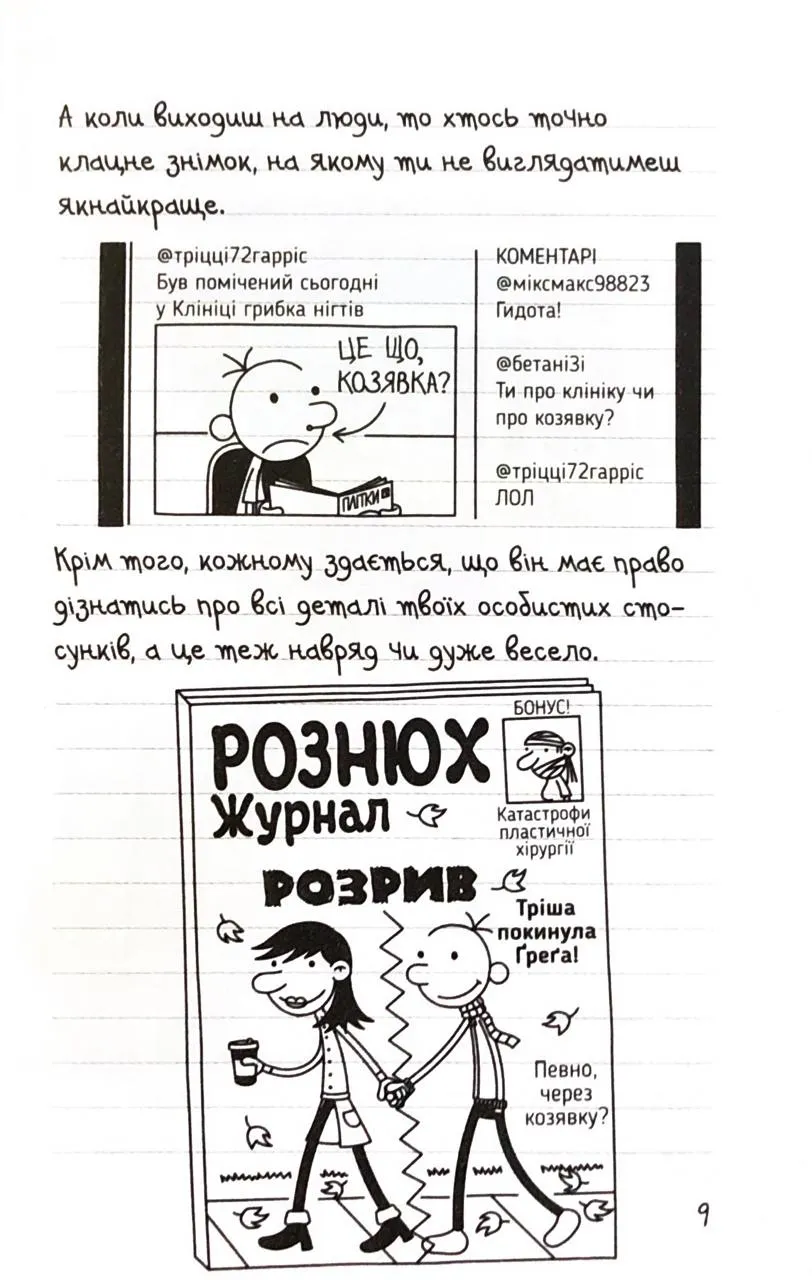 А коли виходиш на люди, то хтось точно
клацне знімок, на якому ти не виглядатимеш
якнайкраще.
@тріцці72гарріс
Був помічений сьогодні
у Клініці грибка нігтів
ЦЕ ЩО,
КОЗЯВКА?
ПАПКИ
КОМЕНТАРІ
@міксмакс98823
Гидота!
@бетаніЗі
Ти про клініку чи
про козявку?
@тріцці72гарріс
ЛОЛ
Крім того, кожному здається, що він має право
дізнатись про всі деталі твоїх особистих сто-
сунків, а це теж навряд чи дуже весело.
РОЗНЮХ
Журнал
БОНУС!
Катастрофи
пластичної
хірургії
РОЗРИВ
Тріша
покинула
Ґреґа!
Певно,
через
козявку?
9